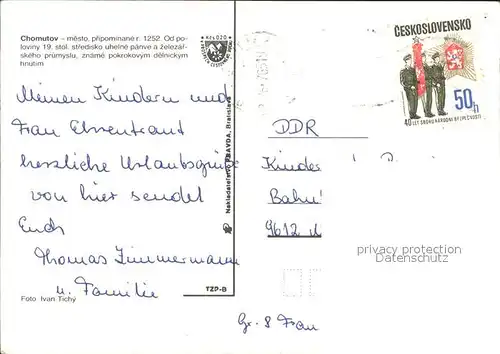 Chomutov – město, připomínané r. 1252. Od po-
loviny 19. stol. středisko uhelné pánve a železář-
ského průmyslu, známé pokrokovým dělnickým
hnutím
Meinen Kindern und
Frau Ehrentraut
herzliche Urlaubsgrüße
von hier sendet
Euch
Thomas Zimmermann
u. Familie
Foto Ivan Tichý
TZP-B
Nakladateľstvo PRAVDA, Bratislava
ČESKOSLOVENSKO
50h
40 LET SBORU NÁRODNÍ BEZPEČNOSTI
DDR
Kinder
Bahn
9612
privacy protection
Ansichtskartenversand.com
Gr. 8 Frau